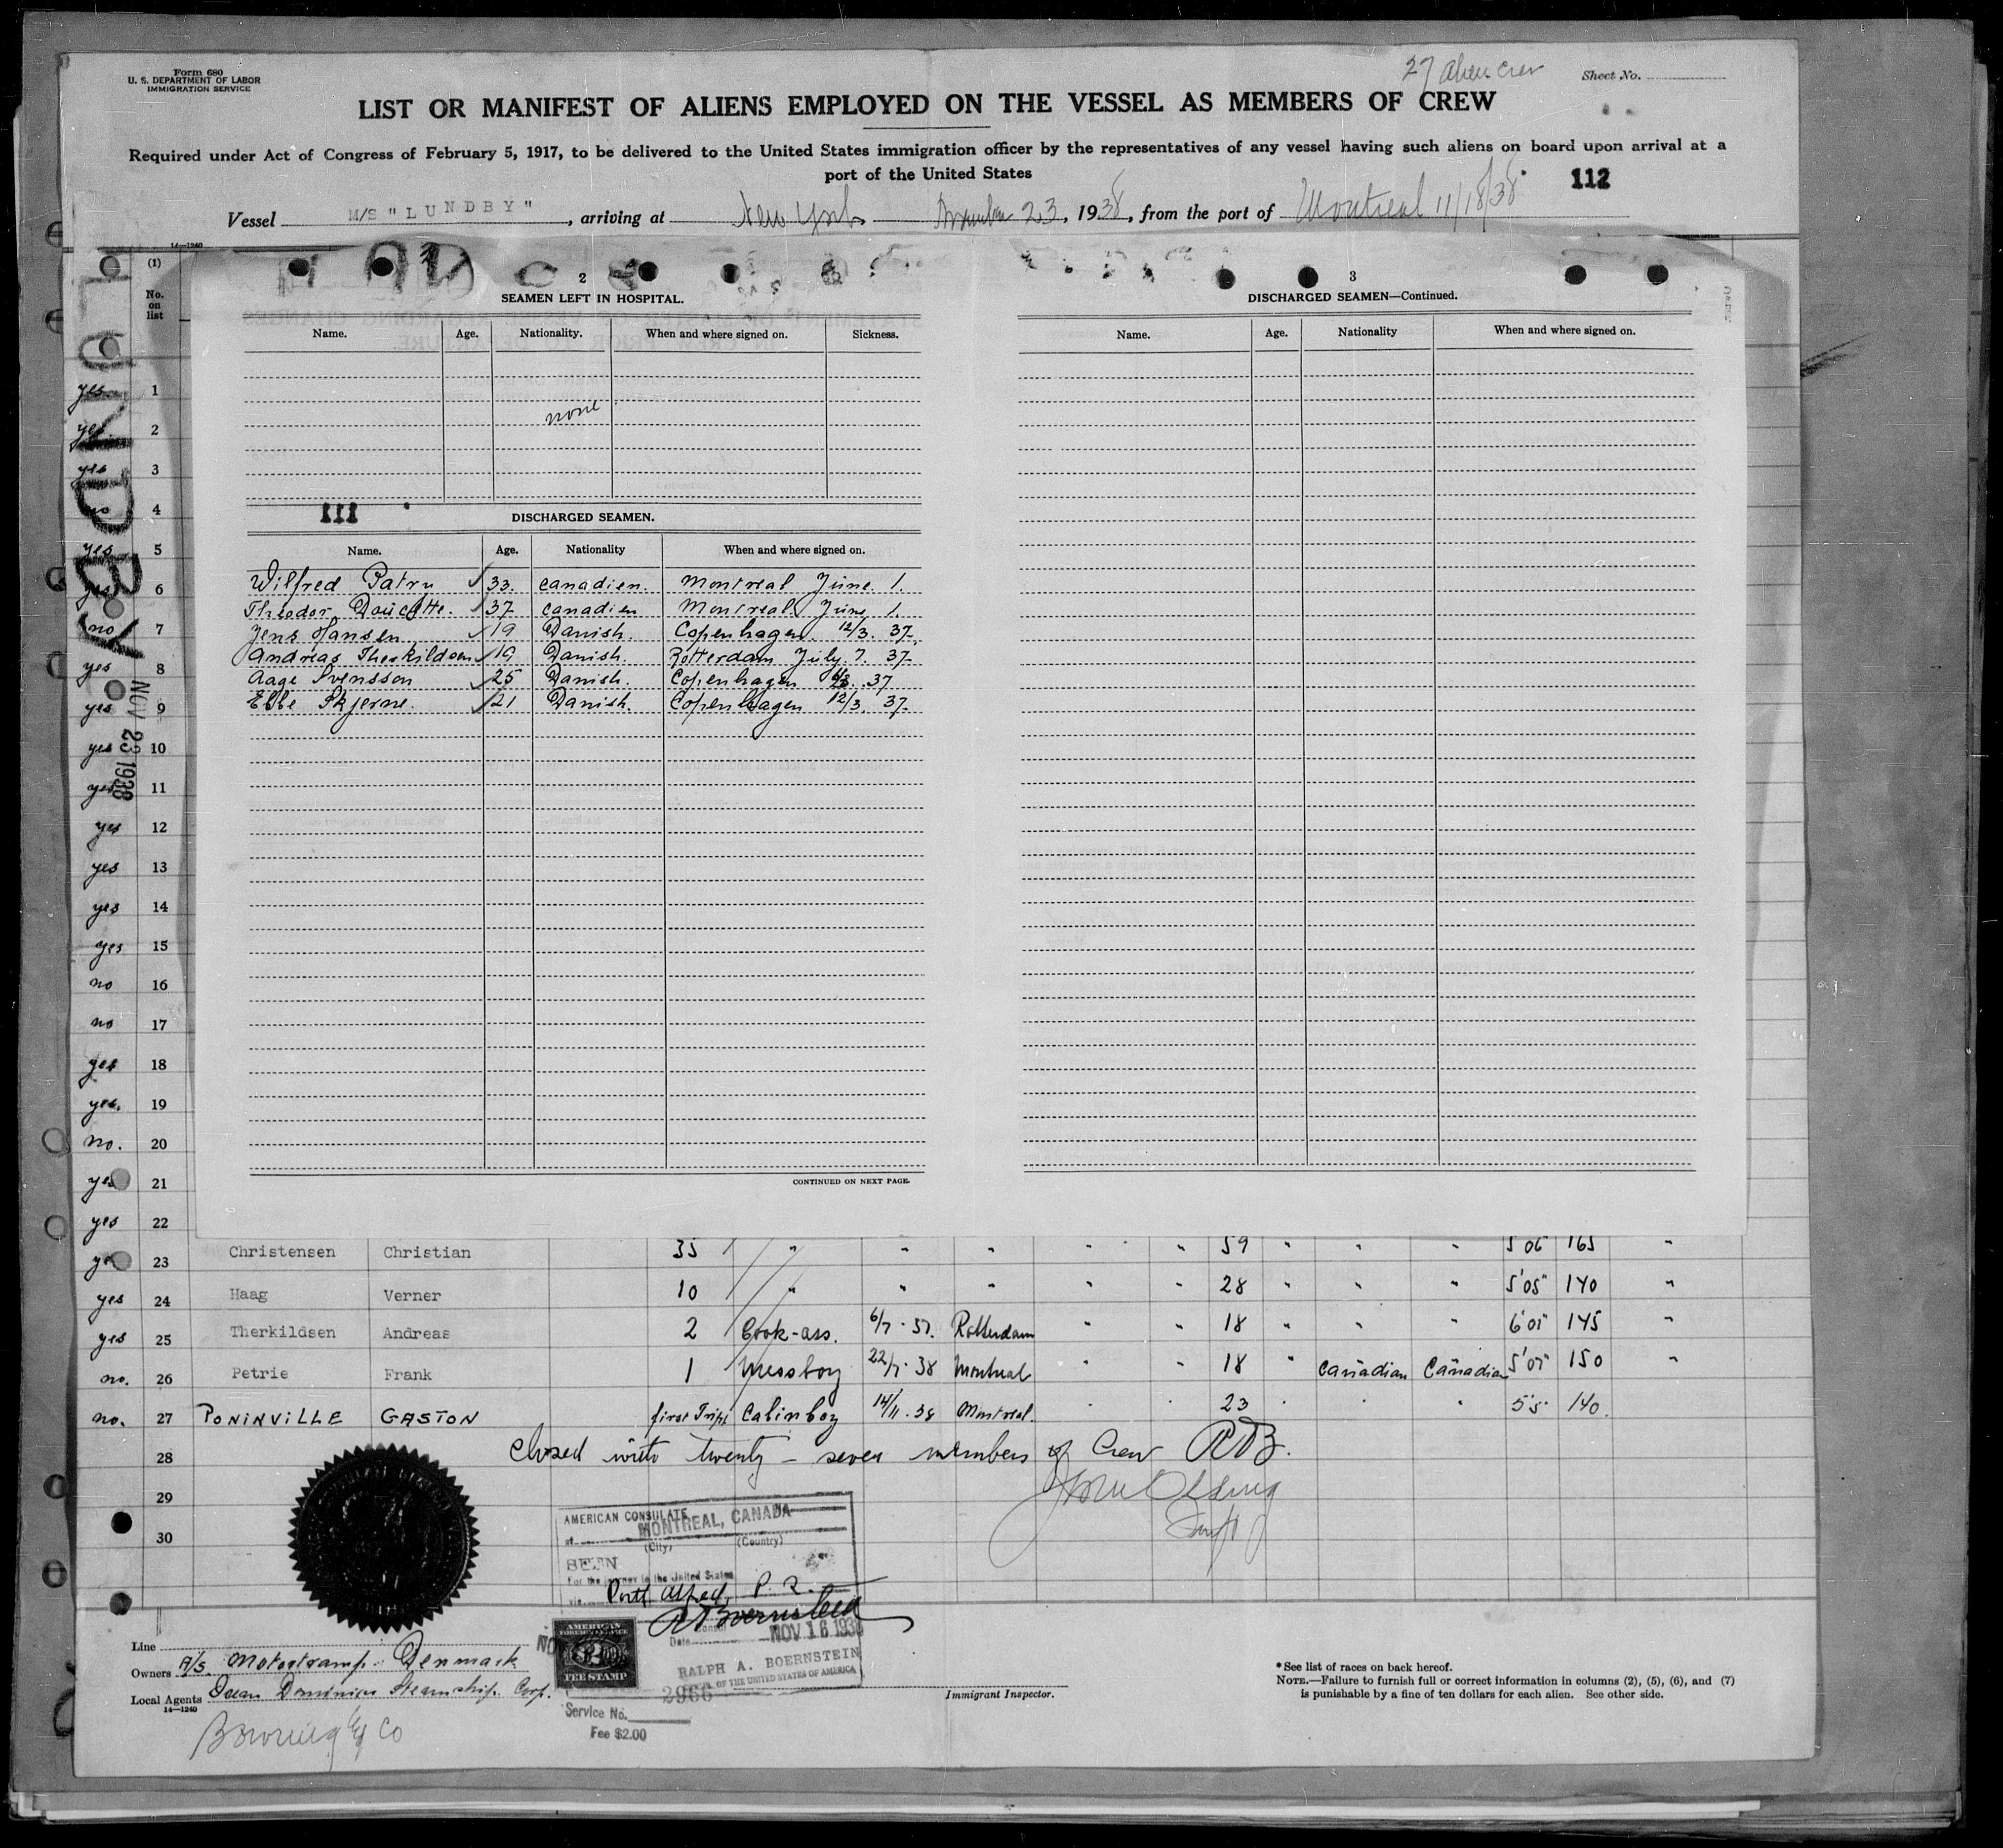 Form 680
U. S. DEPARTMENT OF LABOR
IMMIGRATION SERVICE
27 alien crew
Sheet No.
LIST OR MANIFEST OF ALIENS EMPLOYED ON THE VESSEL AS MEMBERS OF CREW
Required under Act of Congress of February 5, 1917, to be delivered to the United States immigration officer by the representatives of any vessel having such aliens on board upon arrival at a
port of the United States
112
Vessel M/S "LUNDBY", arriving at New York November 23, 1938, from the port of Montreal 11/18/38
14—1240
LUNDBY
NOV 23 1938
(1)
No. on list
2
SEAMEN LEFT IN HOSPITAL.
Name. Age. Nationality. When and where signed on. Sickness.
none
111
DISCHARGED SEAMEN.
Name. Age. Nationality When and where signed on.
Wilfred Patry 33. canadien. Montreal June. 1.
Theodor Doucette. 37 canadien Montreal. June 1.
Jens Hansen 19 Danish. Copenhagen. 12/3. 37.
Andreas Therkildsen 19 Danish. Rotterdam July. 7. 37.
Aage Svensson 25 Danish. Copenhagen 37
Ebbe Skjerne. 21 Danish. Copenhagen 12/3. 37.
CONTINUED ON NEXT PAGE.
3
DISCHARGED SEAMEN—Continued.
Name. Age. Nationality When and where signed on.
yes 1
yes 2
yes 3
no 4
yes 5
yes 6
no 7
yes 8
yes 9
yes 10
yes 11
yes 12
yes 13
yes 14
yes 15
no 16
no 17
yes 18
yes. 19
no. 20
yes 21
yes 22
yes 23 Christensen Christian 35 " " " " " 59 " " " 5'06 165 "
yes 24 Haag Verner 10 " " " " " 28 " " " 5'05" 140 "
yes 25 Therkildsen Andreas 2 Cook-ass. 6/7-37. Rotterdam " " 18 " " " 6'01" 145 "
no. 26 Petrie Frank 1 Messboy 22/7-38 Montreal " " 18 " Canadian Canadian 5'07" 150 "
no. 27 PONINVILLE GASTON first Trip Cabinboy 14/11-38 Montreal. " " 23 " " " 5'5" 140.
28 Closed with twenty-seven members of Crew RAB.
29
30
AMERICAN CONSULATE
at MONTREAL, CANADA
(City) (Country)
SEEN
For the journey to the United States
via Port Alfred, P. Q.
RABoernstein
Consul
Date NOV 16 1938
RALPH A. BOERNSTEIN
OF THE UNITED STATES OF AMERICA
2966
AMERICAN
FOREIGN SERVICE
FEE STAMP
Service No.
Fee $2.00
Line
Owners A/S. Motortramp. Denmark
Local Agents Ocean Dominion Steamship Corp.
14—1240
Bowring & Co
Immigrant Inspector.
* See list of races on back hereof.
NOTE.—Failure to furnish full or correct information in columns (2), (5), (6), and (7)
is punishable by a fine of ten dollars for each alien. See other side.